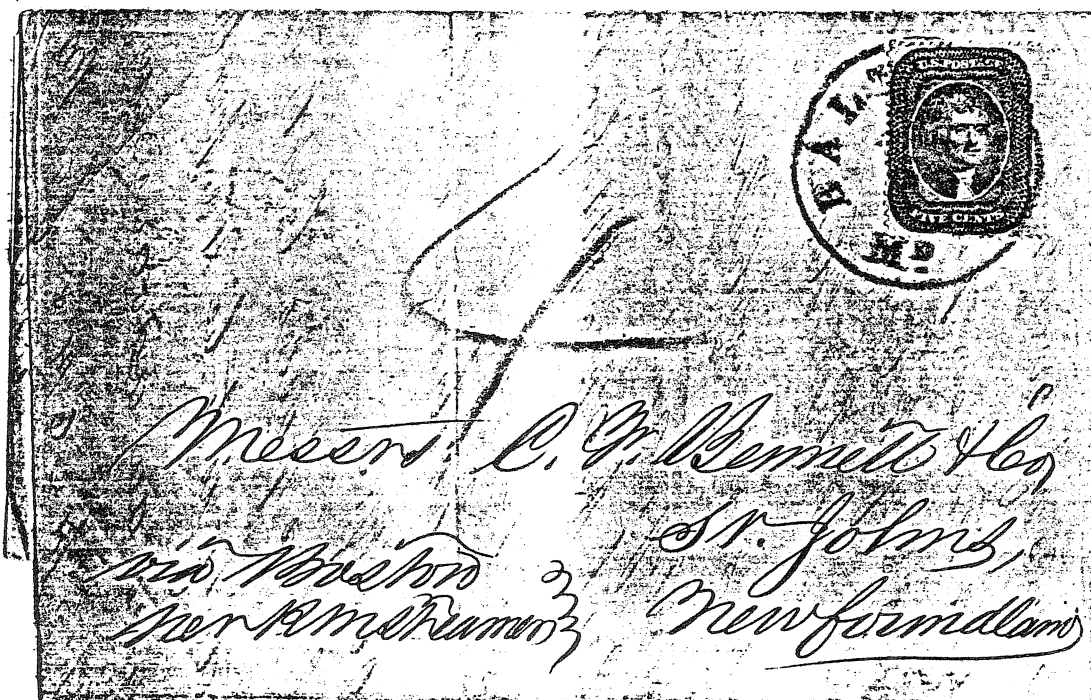 U.S. POSTAGE
FIVE CENTS
BAL
MD
4
Messrs. C. F. Bennett & Co,
St. Johns,
Newfoundland
via Boston
per R M Steamer